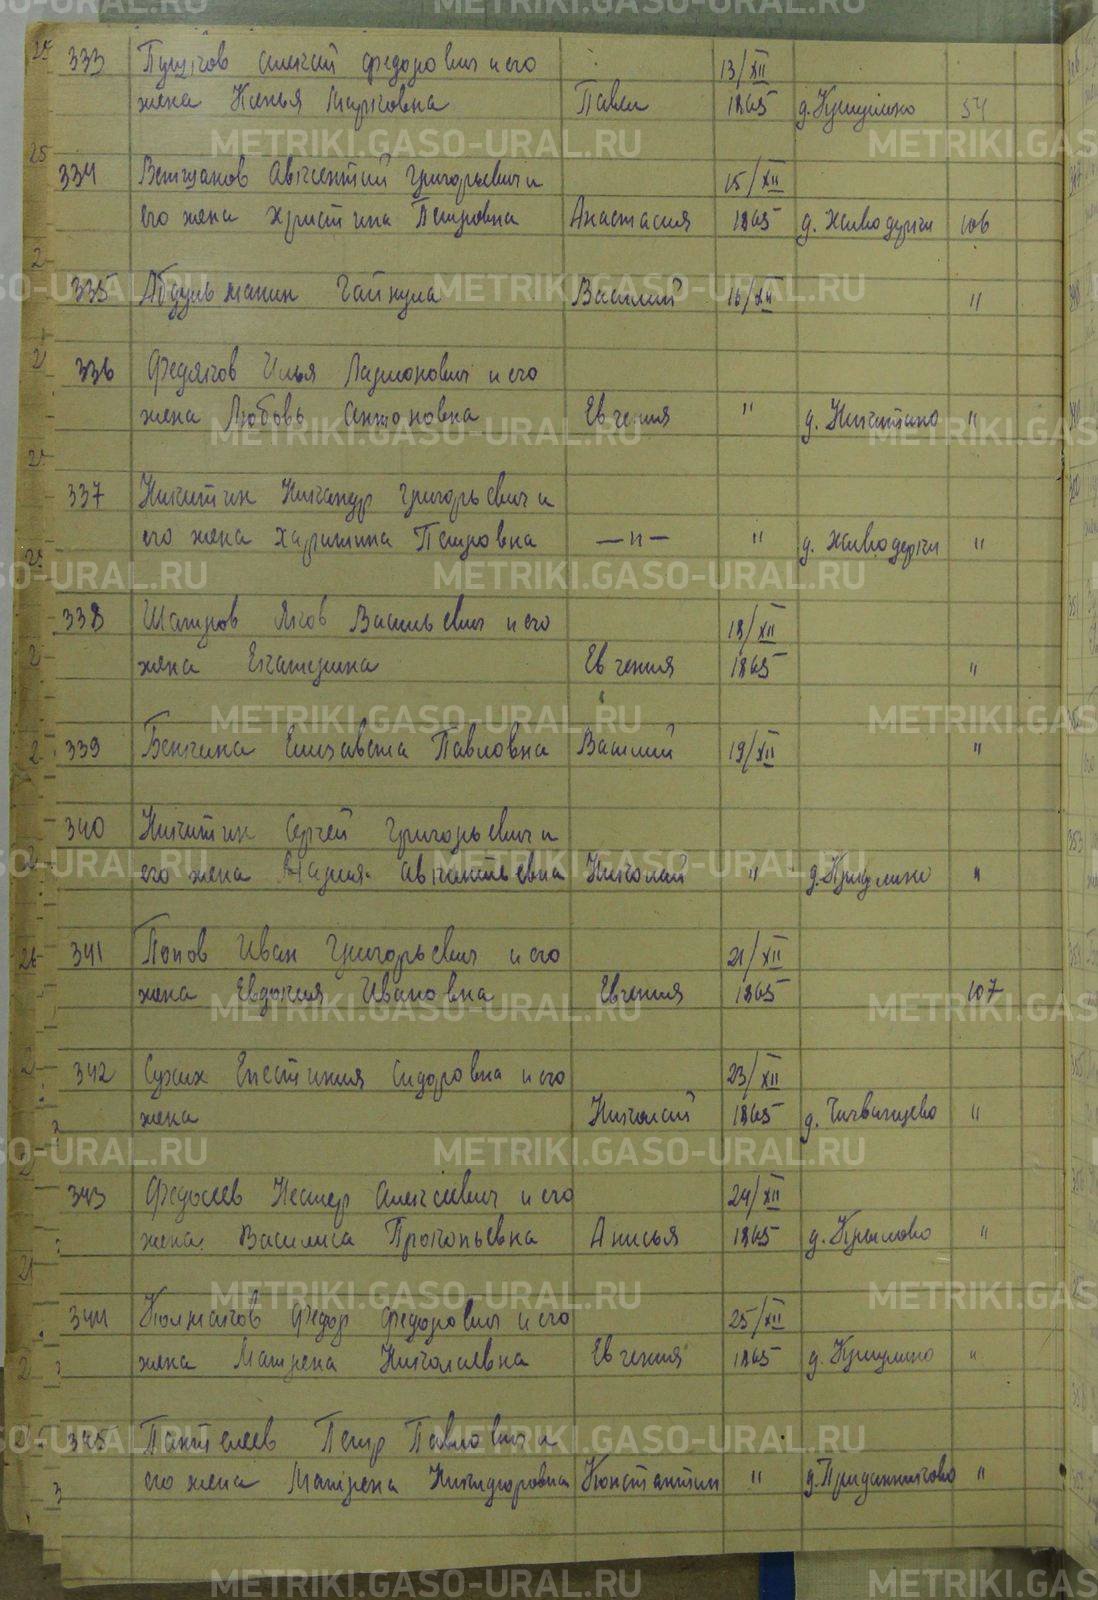 METRIKI.GASO-URAL.RU
333 Пушков Алексей Федорович и его 13/XII
жена Ксенья Марковна Павел 1865 д. Криулино 54
334 Вентанов Авксентий Григорьевич и 15/XII
его жена Христина Петровна Анастасия 1865 д. Живодерки 106
335 Абдульманин Гайнула Василий 16/XII "
336 Федяков Илья Ларионович и его
жена Любовь Антоновна Евгения " д. Никитино "
337 Никитин Никандр Григорьевич и
его жена Харитина Петровна —"— " д. Живодерки "
338 Шатров Яков Васильевич и его 18/XII
жена Екатерина Евгения 1865 "
339 Бенкина Елизавета Павловна Василий 19/XII "
340 Никитин Сергей Григорьевич и
его жена Мария Авкентьевна Николай " д. Криулино "
341 Попов Иван Григорьевич и его 21/XII
жена Евдокия Ивановна Евгения 1865 107
342 Сухих Епестиния Сидоровна и его 23/XII
жена Николай 1865 д. "
343 Федосеев Нестер Алексеевич и его 24/XII
жена Василиса Прокопьевна Анисья 1865 д. Крылово "
344 Колмаков Федор Федорович и его 25/XII
жена Матрена Николаевна Евгения 1865 д. Криулино "
345 Пантелеев Петр Павлович и
его жена Матрена Никифоровна Константин " д. Приданниково "